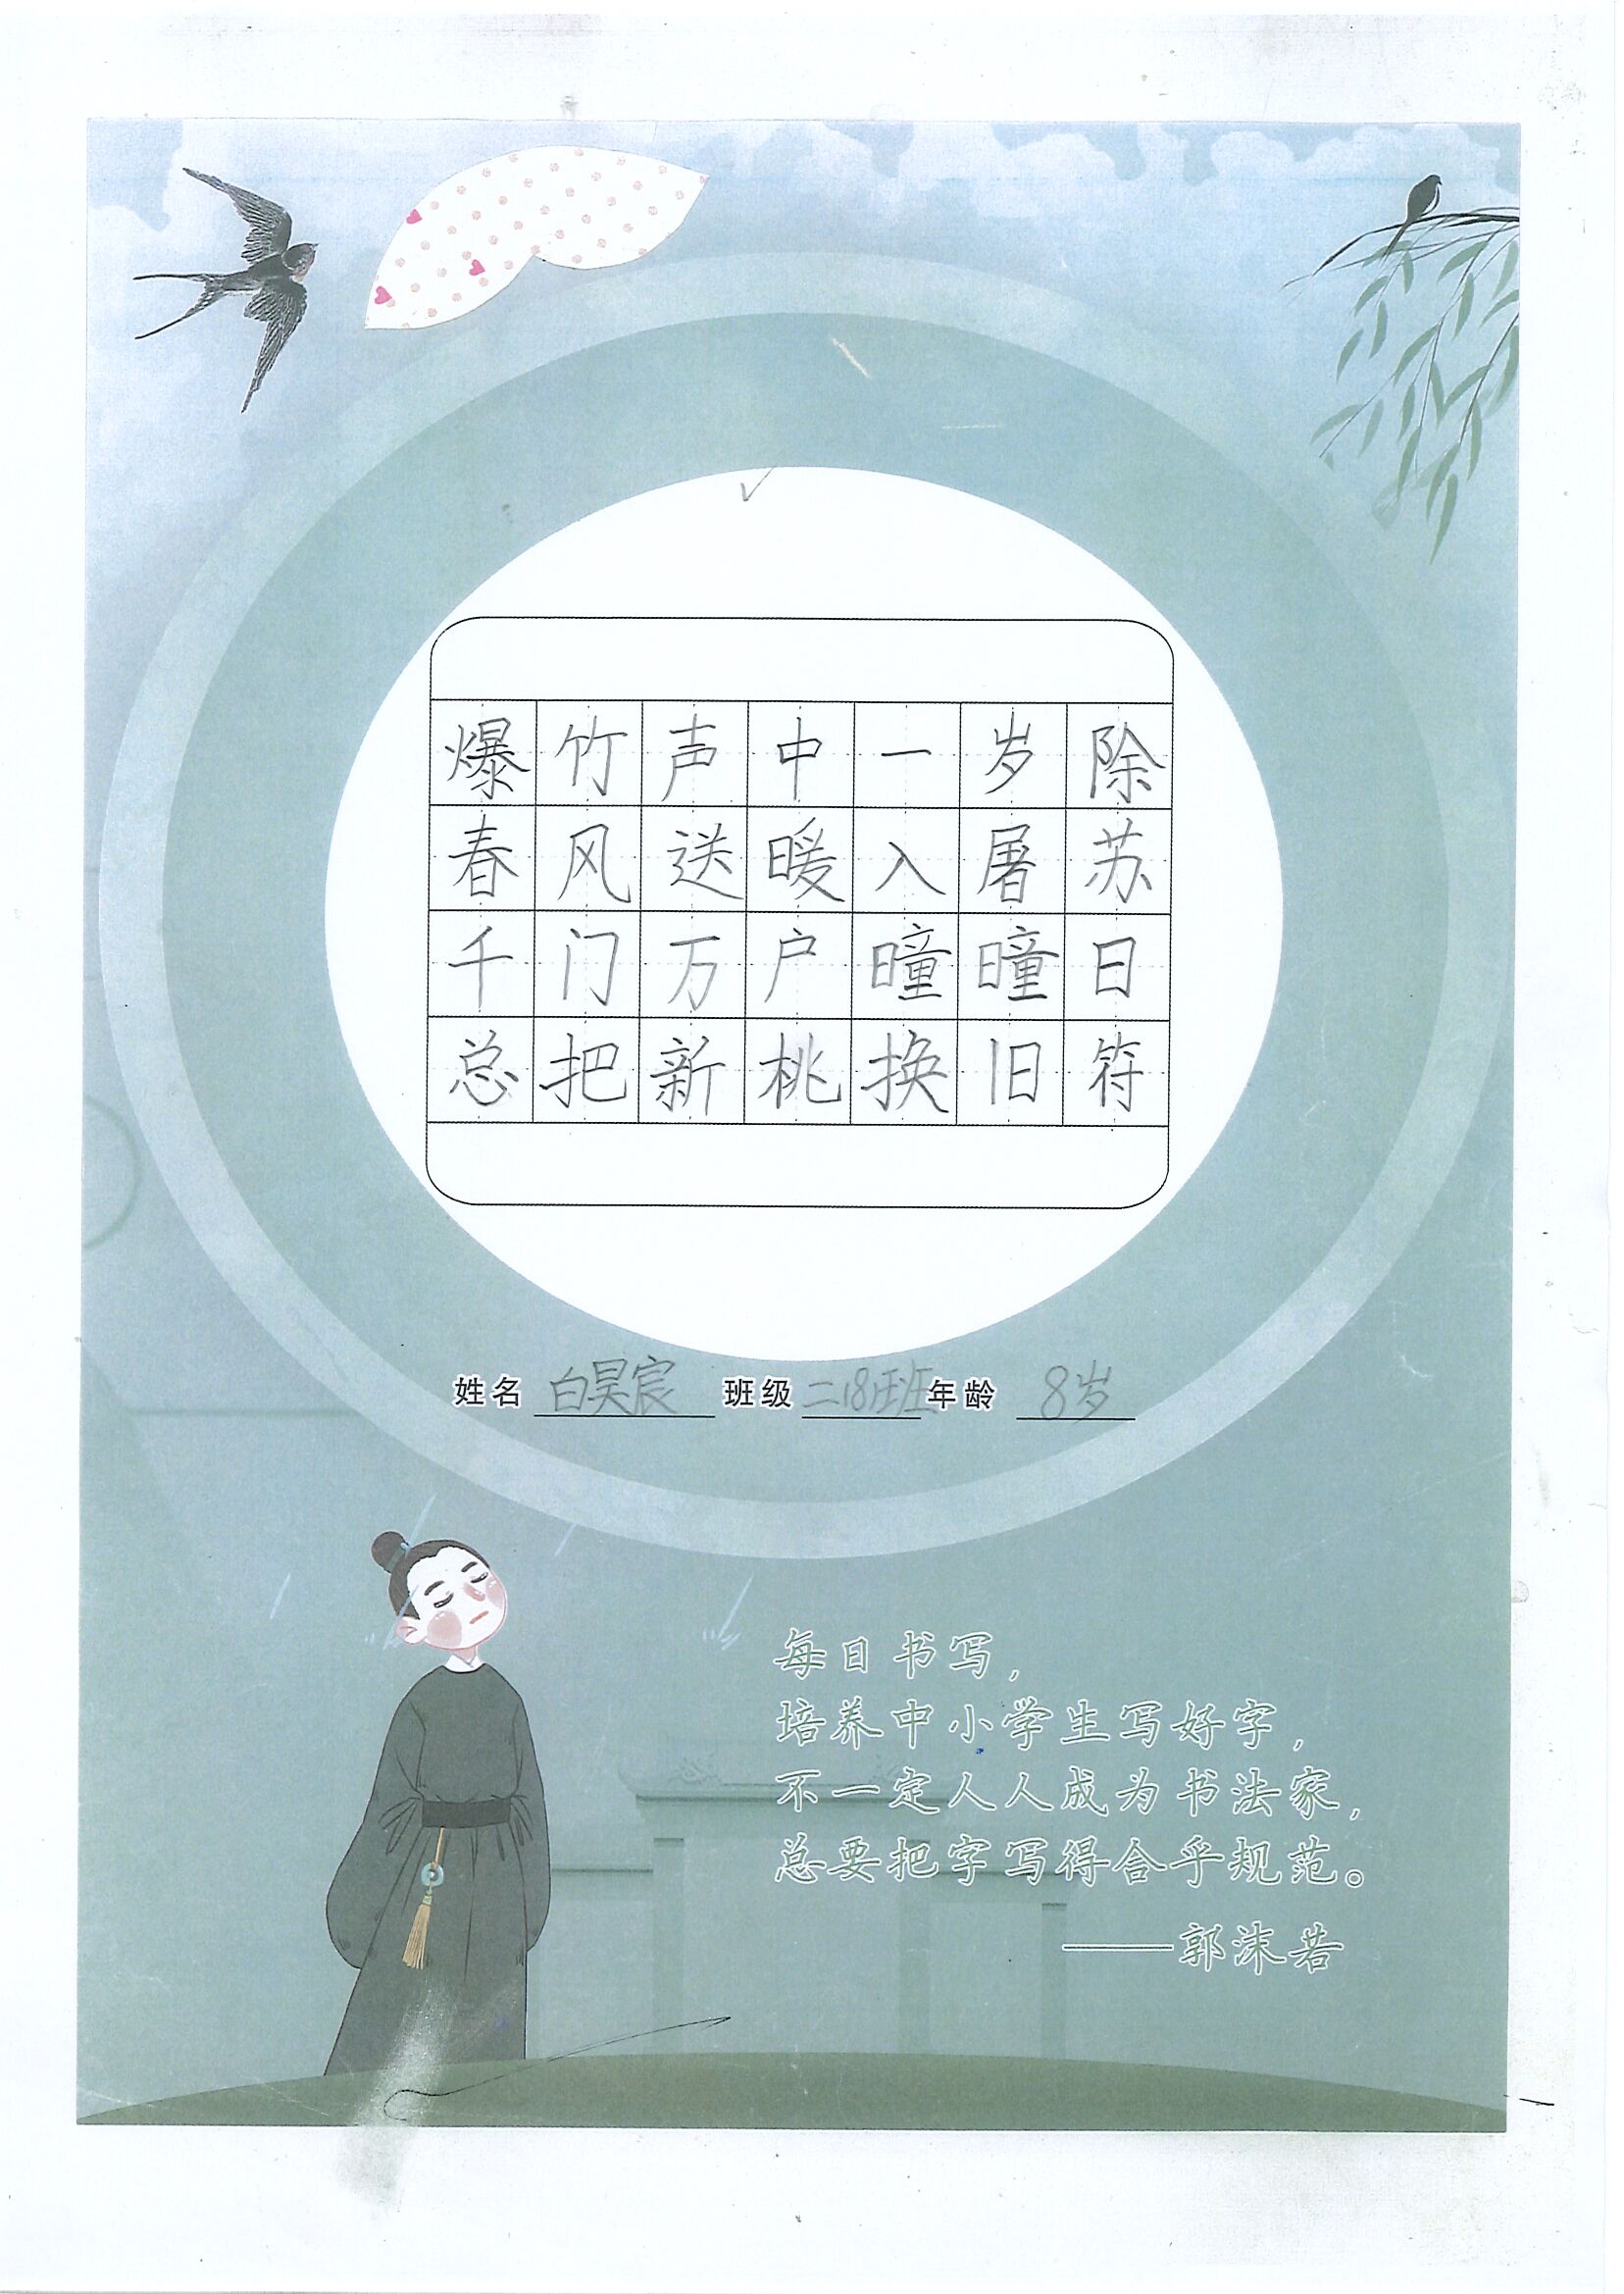 爆竹声中一岁除
春风送暖入屠苏
千门万户曈曈日
总把新桃换旧符
姓名 白昊宸 班级 二18班 年龄 8岁
每日书写，
培养中小学生写好字，
不一定人人成为书法家，
总要把字写得合乎规范。
——郭沫若